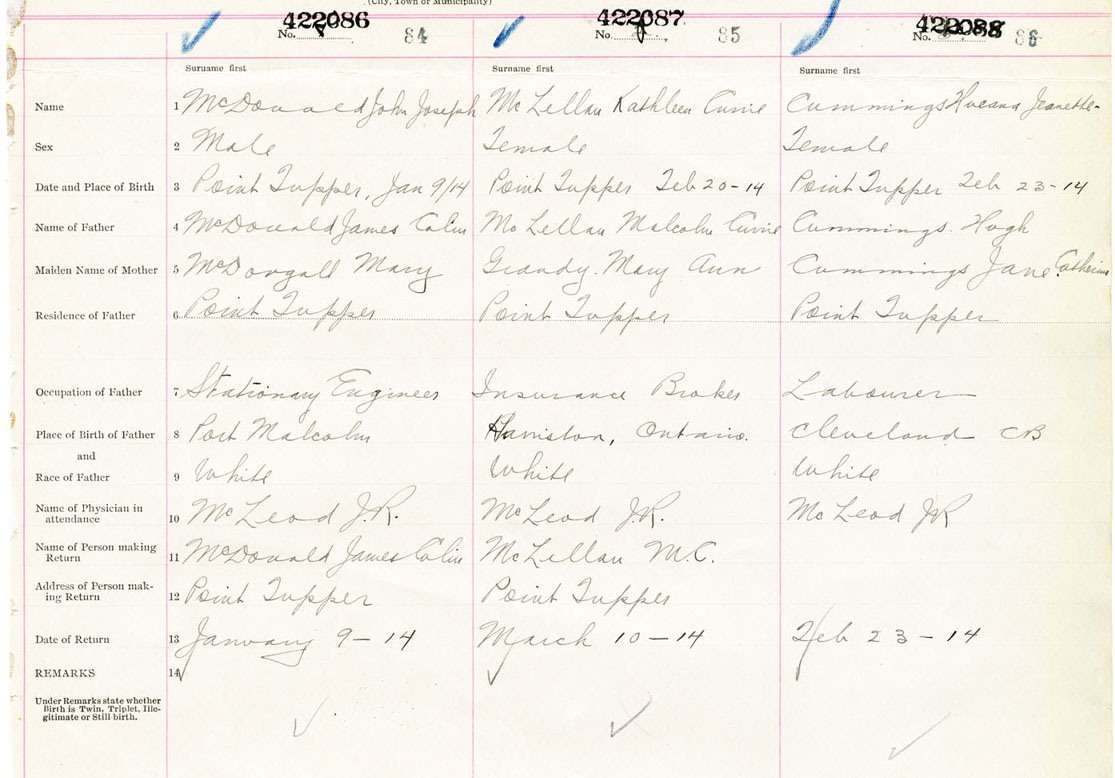 (City, Town or Municipality)
422086 422087 422088
No. 84 No. 85 No. 86
Surname first Surname first Surname first
Name 1 McDonald John Joseph McLellan Kathleen Currie Cummings Jeanette
Sex 2 Male Female Female
Date and Place of Birth 3 Point Tupper, Jan 9/14 Point Tupper Feb 20-14 Point Tupper Feb 23-14
Name of Father 4 McDonald James Colin McLellan Malcolm Currie Cummings. Hugh
Maiden Name of Mother 5 McDougall Mary Grandy. Mary Ann Cummings Jane Catherine
Residence of Father 6 Point Tupper Point Tupper Point Tupper
Occupation of Father 7 Stationary Engineer Insurance Broker Labourer
Place of Birth of Father 8 Port Malcolm Harriston, Ontario. Cleveland CB
and
Race of Father 9 White White White
Name of Physician in
attendance 10 McLeod J.R. McLeod J.R. McLeod JR
Name of Person making
Return 11 McDonald James Colin McLellan M.C.
Address of Person mak-
ing Return 12 Point Tupper Point Tupper
Date of Return 13 January 9-14 March 10-14 Feb 23-14
REMARKS 14
Under Remarks state whether
Birth is Twin, Triplet, Ille-
gitimate or Still-birth.